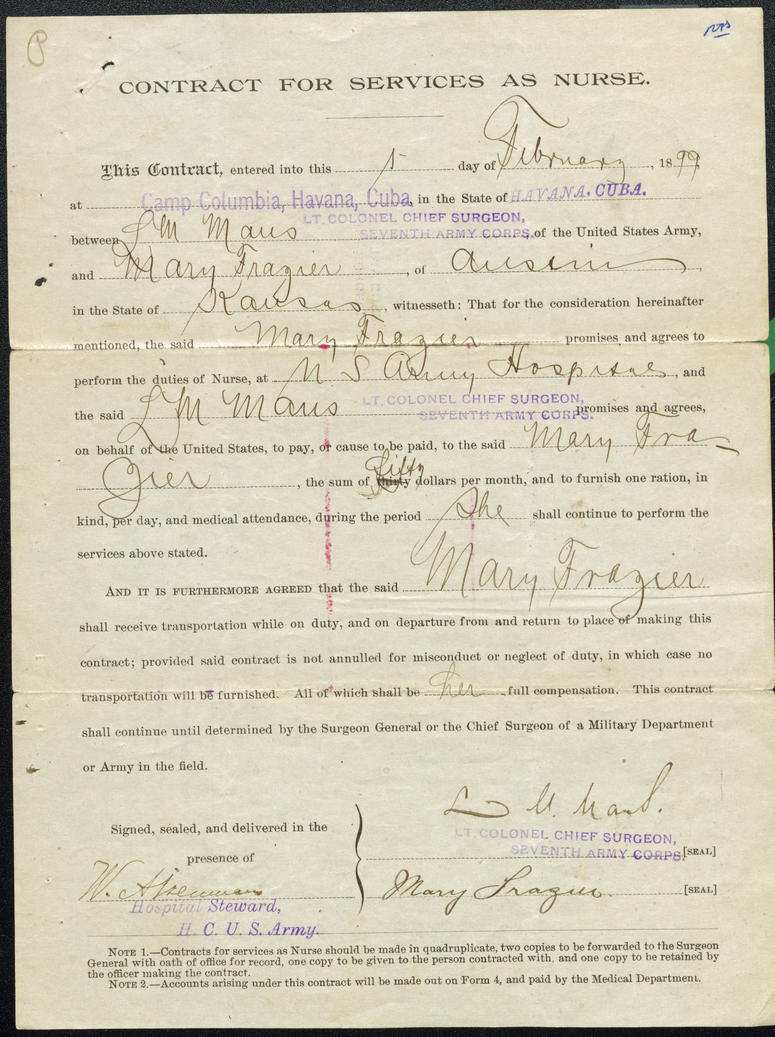 CONTRACT FOR SERVICES AS NURSE.
This Contract, entered into this 1 day of February, 1899
at Camp Columbia, Havana, Cuba, in the State of HAVANA. CUBA.
LT. COLONEL CHIEF SURGEON,
between L M Maus SEVENTH ARMY CORPS, of the United States Army,
and Mary Frazier, of Austin,
in the State of Kansas, witnesseth: That for the consideration hereinafter
mentioned, the said Mary Frazier promises and agrees to
perform the duties of Nurse, at U S Army Hospital, and
LT. COLONEL CHIEF SURGEON,
the said L M Maus SEVENTH ARMY CORPS. promises and agrees,
on behalf of the United States, to pay, or cause to be paid, to the said Mary Fra-
zier, the sum of thirty fifty dollars per month, and to furnish one ration, in
kind, per day, and medical attendance, during the period she shall continue to perform the
services above stated.
AND IT IS FURTHERMORE AGREED that the said Mary Frazier
shall receive transportation while on duty, and on departure from and return to place of making this
contract; provided said contract is not annulled for misconduct or neglect of duty, in which case no
transportation will be furnished. All of which shall be her full compensation. This contract
shall continue until determined by the Surgeon General or the Chief Surgeon of a Military Department
or Army in the field.
L M Maus.
Signed, sealed, and delivered in the
LT. COLONEL CHIEF SURGEON,
presence of
SEVENTH ARMY CORPS. [SEAL]
W. Mary Frazier. [SEAL]
Hospital Steward,
H. C. U. S. Army.
NOTE 1.—Contracts for services as Nurse should be made in quadruplicate, two copies to be forwarded to the Surgeon
General with oath of office for record, one copy to be given to the person contracted with, and one copy to be retained by
the officer making the contract.
NOTE 2.—Accounts arising under this contract will be made out on Form 4, and paid by the Medical Department.